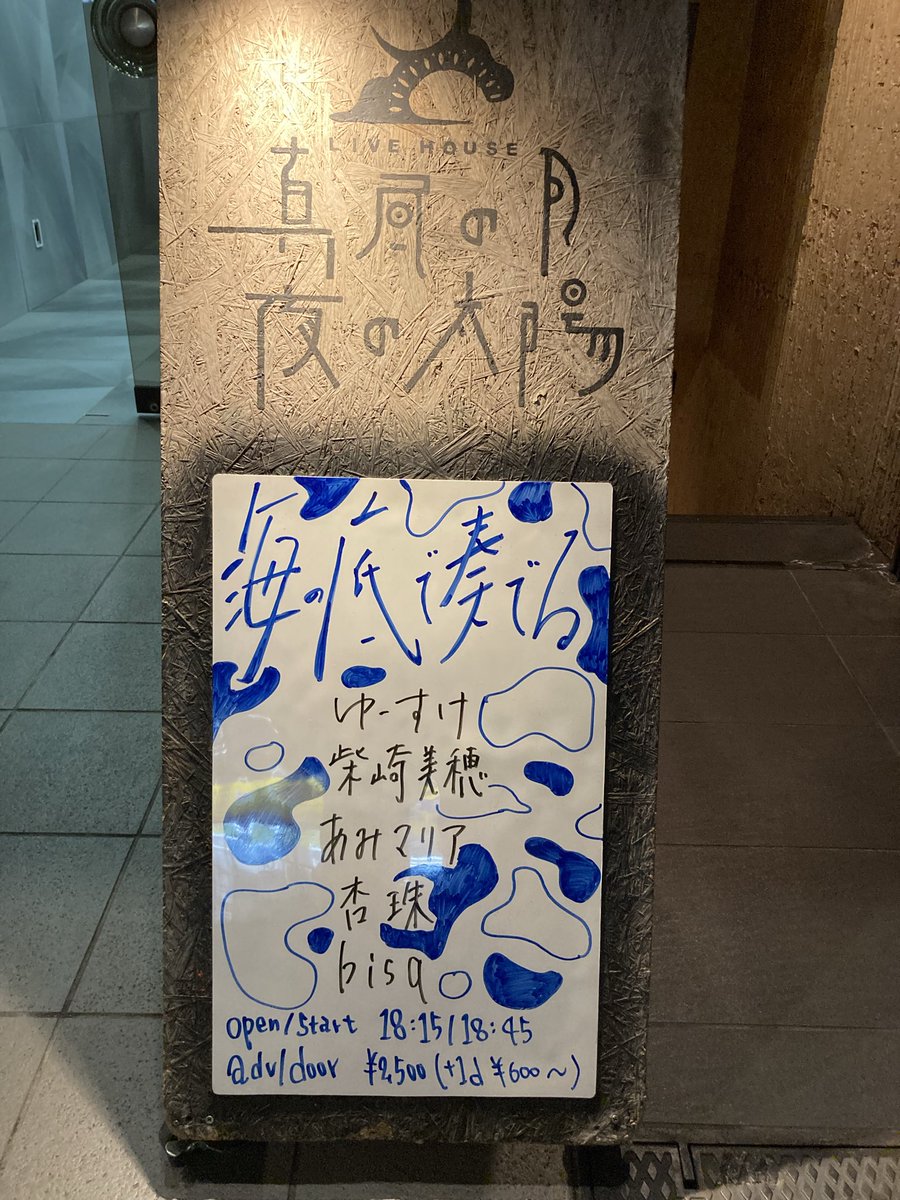 LIVE HOUSE
真昼の月
夜の太陽
海の底で奏でる
ゆーすけ
柴崎美穂
あみマリア
杏珠
bisa
open/start 18:15/18:45
adv/door ¥2,500(+1d ¥600~)